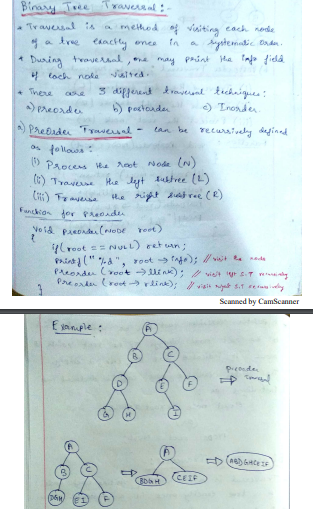 Binary Tree Traversal :-
* Traversal is a method of visiting each node
of a tree exactly once in a systematic order.
* During traversal, one may print the info field
of each node visited.
* There are 3 different traversal techniques:
a) preorder b) postorder c) Inorder.
a) PreOrder Traversal - can be recursively defined
as follows:
(i) Process the root Node (N)
(ii) Traverse the left subtree (L)
(iii) Traverse the right subtree (R)
Function for preorder
Void Preorder(Node root)
{
if (root == NULL) return;
Printf("%d", root → info); // visit the node
Preorder (root → llink); // visit left S.T recursively
Preorder (root → rlink); // visit right S.T recursively
}
Scanned by CamScanner
Example :
A
B C
D E F
G H I
preorder
Traversal
A
B C
DGH EI F
A
BDGH CEIF
ABDGHCEIF